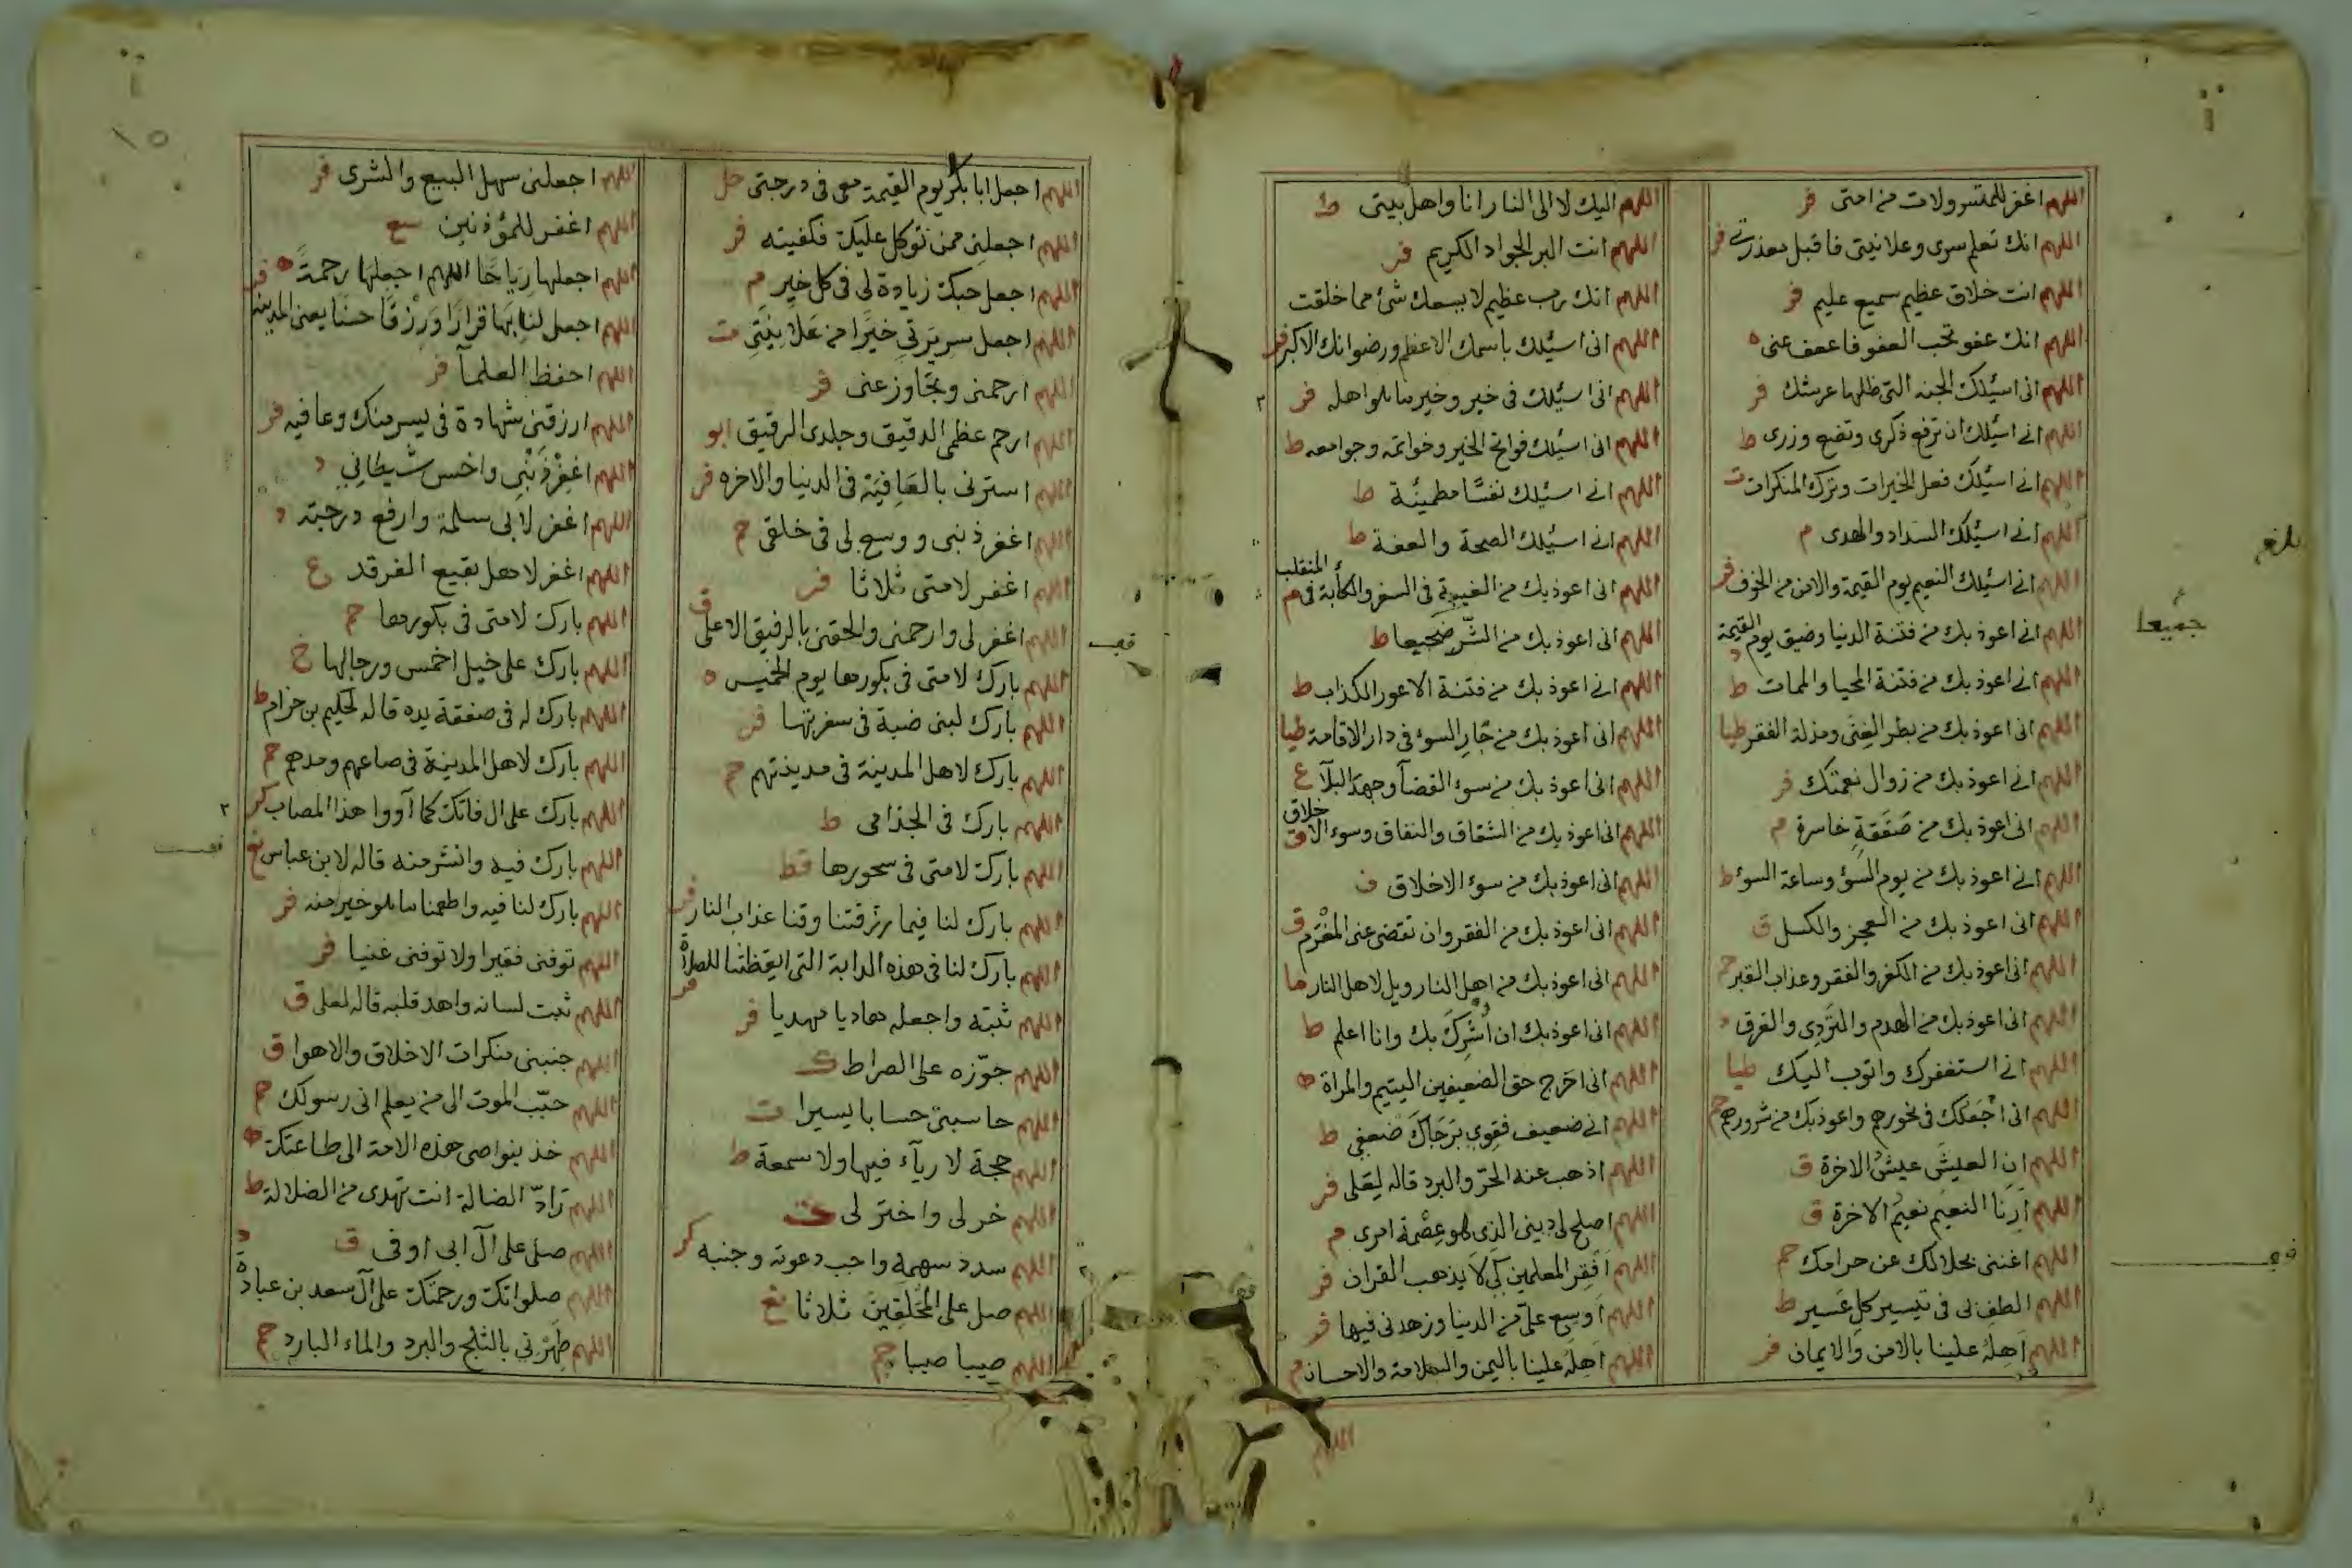 اللهم اغفر للمتسرولات من امتى فر
اللهم انك تعلم سرى وعلانيتى فاقبل معذرتى فر
اللهم انت خلاق عظيم سميع عليم فر
اللهم انك عفو تحب العفو فاعف عنى ه
اللهم انى اسئلك الجنه التى ظلها عرشك فر
اللهم انى اسئلك ان ترفع ذكرى وتضع وزرى ط
اللهم انى اسئلك فعل الخيرات وترك المنكرات ت
اللهم انى اسئلك السداد والهدى م
اللهم انى اسئلك النعيم يوم القيمة والامن من الخوف فر
اللهم انى اعوذ بك من فتنة الدنيا وضيق يوم القيمة د
اللهم انى اعوذ بك من فتنة المحيا والممات ط
اللهم انى اعوذ بك من بطر الغنى ومذلة الفقر طيا
اللهم انى اعوذ بك من زوال نعمتك فر
اللهم انى اعوذ بك من صفقة خاسرة م
اللهم انى اعوذ بك من يوم السوء وساعة السوء ط
اللهم انى اعوذ بك من العجز والكسل ق
اللهم انى اعوذ بك من الكفر والفقر وعذاب القبر حم
اللهم انى اعوذ بك من الهدم والتردى والغرق د
اللهم انى استغفرك واتوب اليك طيا
اللهم انى اجعلك فى نحورهم واعوذ بك من شرورهم حم
اللهم ان العيش عيش الاخرة ق
اللهم ارنا النعيم نعيم الاخرة ق
اللهم اغننى بحلالك عن حرامك حم
اللهم الطف بى فى تيسير كل عسير ط
اللهم اهله علينا بالامن والايمان فر
جميعا
اللهم اليك لا الى النار انا واهل بيتى ط
اللهم انت البر الجواد الكريم فر
اللهم انك رب عظيم لا يسعك شئ مما خلقت
اللهم انى اسئلك باسمك الاعظم ورضوانك الاكبر فر
اللهم انى اسئلك فى خير وخير ما هو اهله فر
اللهم انى اسئلك فواتح الخير وخواتمه وجوامعه ط
اللهم انى اسئلك نفسا مطمئنة ط
اللهم انى اسئلك الصحة والعفة ط
اللهم انى اعوذ بك من الغيبة فى السفر والكآبة فى المنقلب م
اللهم انى اعوذ بك من الشر ضجيعا ط
اللهم انى اعوذ بك من فتنة الاعور الكذاب ط
اللهم انى اعوذ بك من جار السوء فى دار الاقامة طيا
اللهم انى اعوذ بك من سوء القضآ وجهد البلآ ع
اللهم انى اعوذ بك من الشقاق والنفاق وسوء الاخلاق ق
اللهم انى اعوذ بك من سوء الاخلاق ف
اللهم انى اعوذ بك من الفقر وان تقضى عنى المغرم ق
اللهم انى اعوذ بك من اهل النار ويل لاهل النار ها
اللهم انى اعوذ بك ان اشرك بك وانا اعلم ط
اللهم انى احرج حق الضعيفين اليتيم والمراة ه
اللهم انى ضعيف فقوى برجاك ضعفى ط
اللهم اذهب عنه الحر والبرد قاله لعلى فر
اللهم اصلح لى دينى الذى هو عصمة امرى م
اللهم افقر المعلمين كى لا يذهب القران فر
اللهم اوسع على من الدنيا وزهدنى فيها فر
اللهم اهله علينا باليمن والسلامة والاحسان م
اللهم
اللهم اجعل ابا بكر يوم القيمة معى فى درجتى حل
اللهم اجعلنى ممن توكل عليك فكفيته فر
اللهم اجعل حبك زيادة لى فى كل خير م
اللهم اجعل سريرتى خيرا من علانيتى ت
اللهم ارحمنى وتجاوز عنى فر
اللهم ارحم عظمى الدقيق وجلدى الرقيق ابو
اللهم استرنى بالعافية فى الدنيا والاخره فر
اللهم اغفر ذنبى ووسع لى فى خلقى حم
اللهم اغفر لامتى ثلاثا فر
اللهم اغفر لى وارحمنى والحقنى بالرفيق الاعلى ق
اللهم بارك لامتى فى بكورها يوم الخميس ه
اللهم بارك لبنى ضبة فى سفرتها فر
اللهم بارك لاهل المدينة فى مدينتهم حم
اللهم بارك فى الجذامى ط
اللهم بارك لامتى فى سحورها قط
اللهم بارك لنا فيما رزقتنا وقنا عذاب النار
اللهم بارك لنا فى هذه الدابة التى ايقظتنا للصلاة فر
اللهم ثبته واجعله هاديا مهديا فر
اللهم جوزه على الصراط ك
اللهم حاسبنى حسابا يسيرا ت
اللهم حجة لا رياء فيها ولا سمعة ط
اللهم خر لى واختر لى ت
اللهم سدد سهمه واجب دعوته وجنبه كر
اللهم صل على المخلقين ثلاثا
اللهم صيبا صيبا حم
اللهم اجعلنى سهل البيع والشرى فر
اللهم اغفر للمؤذنين سع
اللهم اجعلها رياحا اللهم اجعلها رحمة ه
اللهم اجعل لنا بها قرارا ورزقا حسنا يعنى المدينه
اللهم احفظ العلمآ فر
اللهم ارزقنى شهادة فى يسر منك وعافيه فر
اللهم اغفر ذنبى واخس شيطانى د
اللهم اغفر لابى سلمة وارفع درجته د
اللهم اغفر لاهل بقيع الغرقد ع
اللهم بارك لامتى فى بكورها حم
اللهم بارك على خيل احمس ورجالها خ
اللهم بارك له فى صفقة يده قاله لحكيم بن حزام ط
اللهم بارك لاهل المدينة فى صاعهم ومدهم حم
اللهم بارك على ال فاتك كما آووا هذا المصاب كر
اللهم بارك فيه وانشر منه قاله لابن عباس
اللهم بارك لنا فيه واطعمنا ما هو خير منه فر
اللهم توفنى فقيرا ولا توفنى غنيا فر
اللهم ثبت لسانه واهد قلبه قاله لعلى ق
اللهم جنبنى منكرات الاخلاق والاهوا ق
اللهم حبب الموت الى من يعلم انى رسولك حم
اللهم خذ بنواصى هذه الامة الى طاعتك ه
اللهم راد الضالة انت تهدى من الضلالة ط
اللهم صل على آل ابى اوفى ق
اللهم صلواتك ورحمتك على آل سعد بن عبادة د
اللهم طهرنى بالثلج والبرد والماء البارد حم